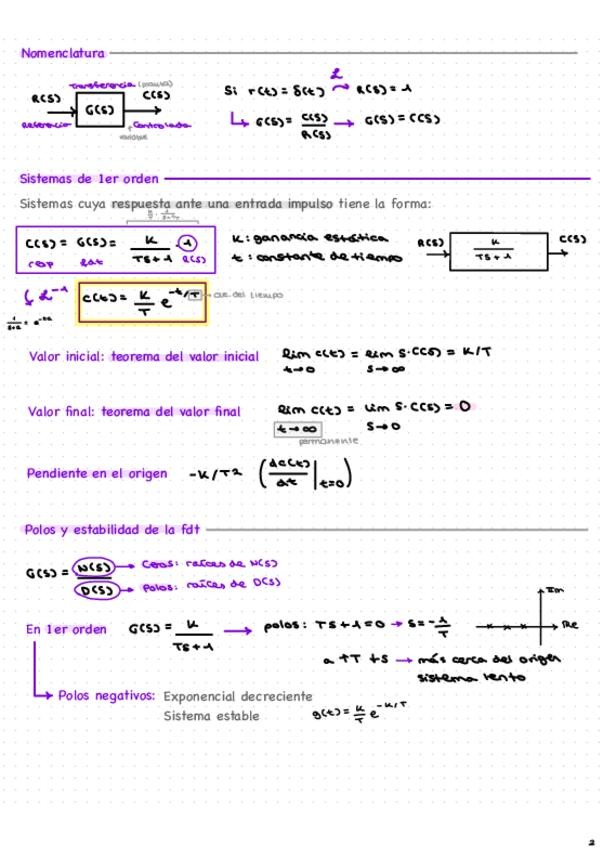 Nomenclatura
Transferencia (planta)
R(s) G(s) C(s)
Referencia Controlada
variable
Si r(t) = δ(t) ℒ R(s) = 1
G(s) = C(s)/R(s) → G(s) = C(s)
Sistemas de 1er orden
Sistemas cuya respuesta ante una entrada impulso tiene la forma:
C(s) = G(s) = K/(Ts+1) · 1
R(s)
K: ganancia estática
t: constante de tiempo
R(s) K/(Ts+1) C(s)
ℒ⁻¹ c(t) = K/T e^(-t/T) → cte. del tiempo
Valor inicial: teorema del valor inicial lim c(t) = lim s·C(s) = K/T
t→0 s→∞
Valor final: teorema del valor final lim c(t) = lim s·C(s) = 0
t→∞ s→0
permanente
Pendiente en el origen -K/T² (dc(t)/dt |t=0)
Polos y estabilidad de la fdt
G(s) = N(s)/D(s)
N(s) → Ceros: raíces de N(s)
D(s) → Polos: raíces de D(s)
En 1er orden G(s) = K/(Ts+1) → polos: Ts+1=0 → s=-1/T
Im
Re
a ↑T ↑s → más cerca del origen
sistema lento
Polos negativos: Exponencial decreciente
Sistema estable g(t) = K/T e^(-K/T)
2